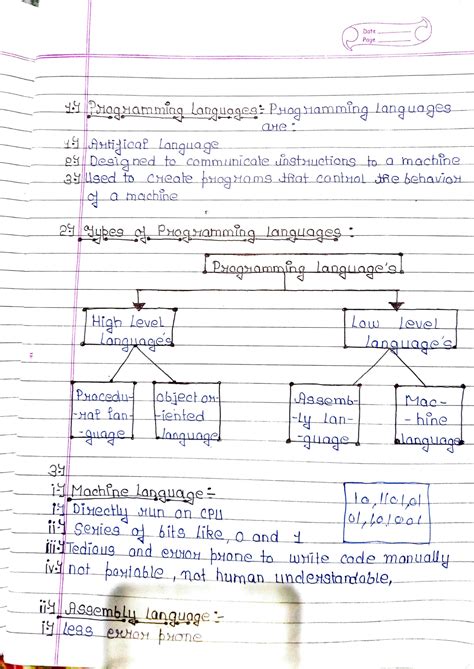 Date
Page
1) Programming Languages:- Programming languages
are:
1) Artifical Language
2) Designed to communicate instructions to a machine
3) Used to create programs that control the behavior
of a machine
2) Types of Programming languages:
Programming language's
High Level
language's
Low Level
language's
Procedu-
-ral lan-
-guage
object or-
iented
language
Assemb-
-ly lan-
-guage
Mac-
-hine
language
3)
i) Machine Language:-
i) Directly run on CPU
ii) Series of bits like, 0 and 1
iii) Tedious and error prone to write code manually
iv) not portable, not human understandable,
ii) Assembly language:-
i) less error prone